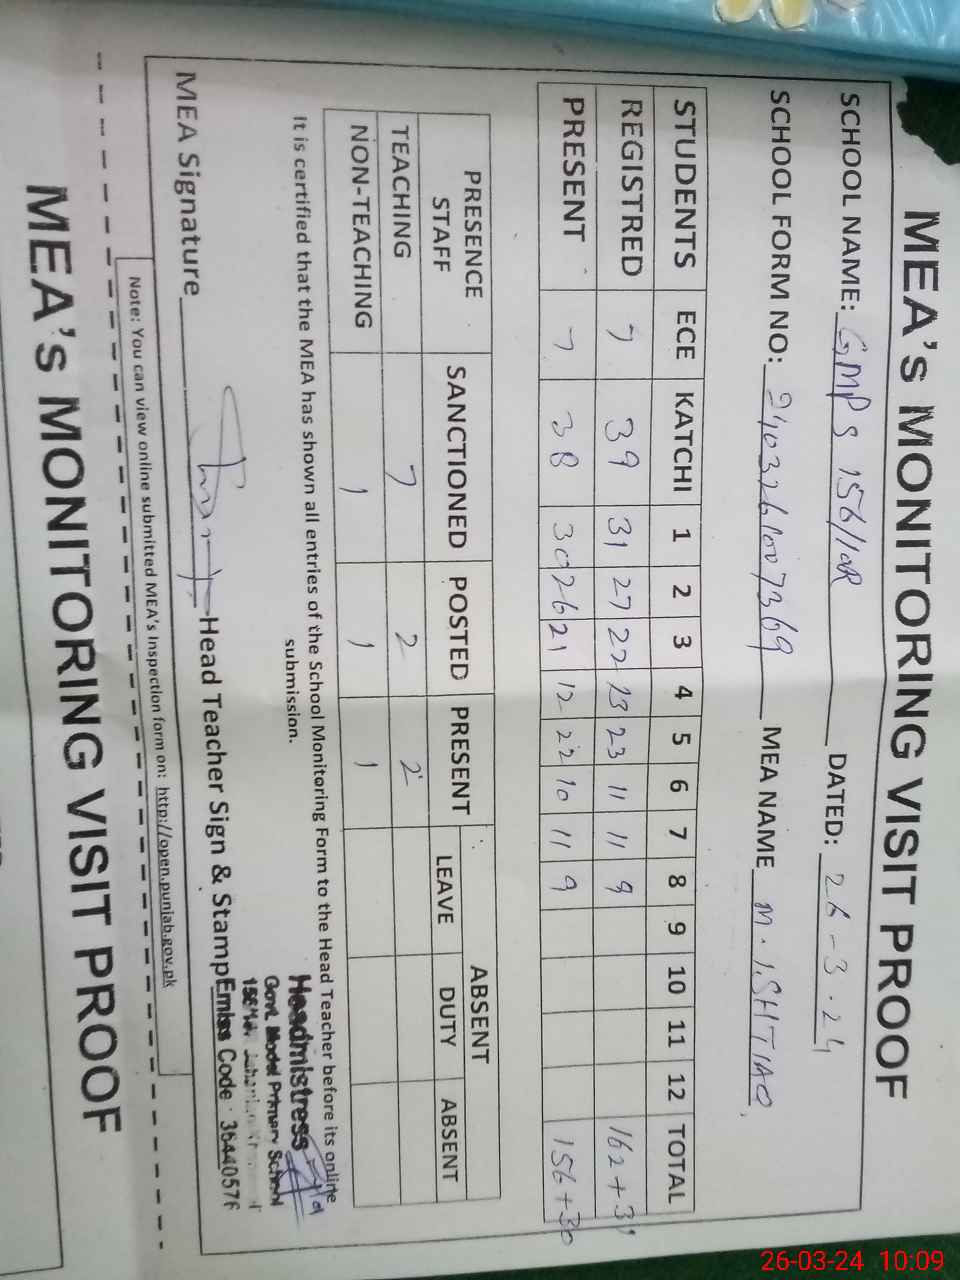 MEA's MONITORING VISIT PROOF
SCHOOL NAME: GMPS 156/10R DATED: 26-3.24
SCHOOL FORM NO: MEA NAME M. ISHTIAQ
STUDENTS ECE KATCHI 1 2 3 4 5 6 7 8 9 10 11 12 TOTAL
REGISTRED 7 39 31 27 22 13 23 11 11 9 162+
PRESENT 7 38 30 26 21 12 22 10 11 9 156+30
PRESENCE STAFF SANCTIONED POSTED PRESENT ABSENT
LEAVE DUTY ABSENT
TEACHING 7 2 2
NON-TEACHING 1 1 1
It is certified that the MEA has shown all entries of the School Monitoring Form to the Head Teacher before its online
submission.
Headmistress
Govt. Model Primary School
MEA Signature Head Teacher Sign & Stamp Emiss Code: 3644057
Note: You can view online submitted MEA's Inspection form on: http://open.punjab.gov.pk
MEA's MONITORING VISIT PROOF
26-03-24 10:09